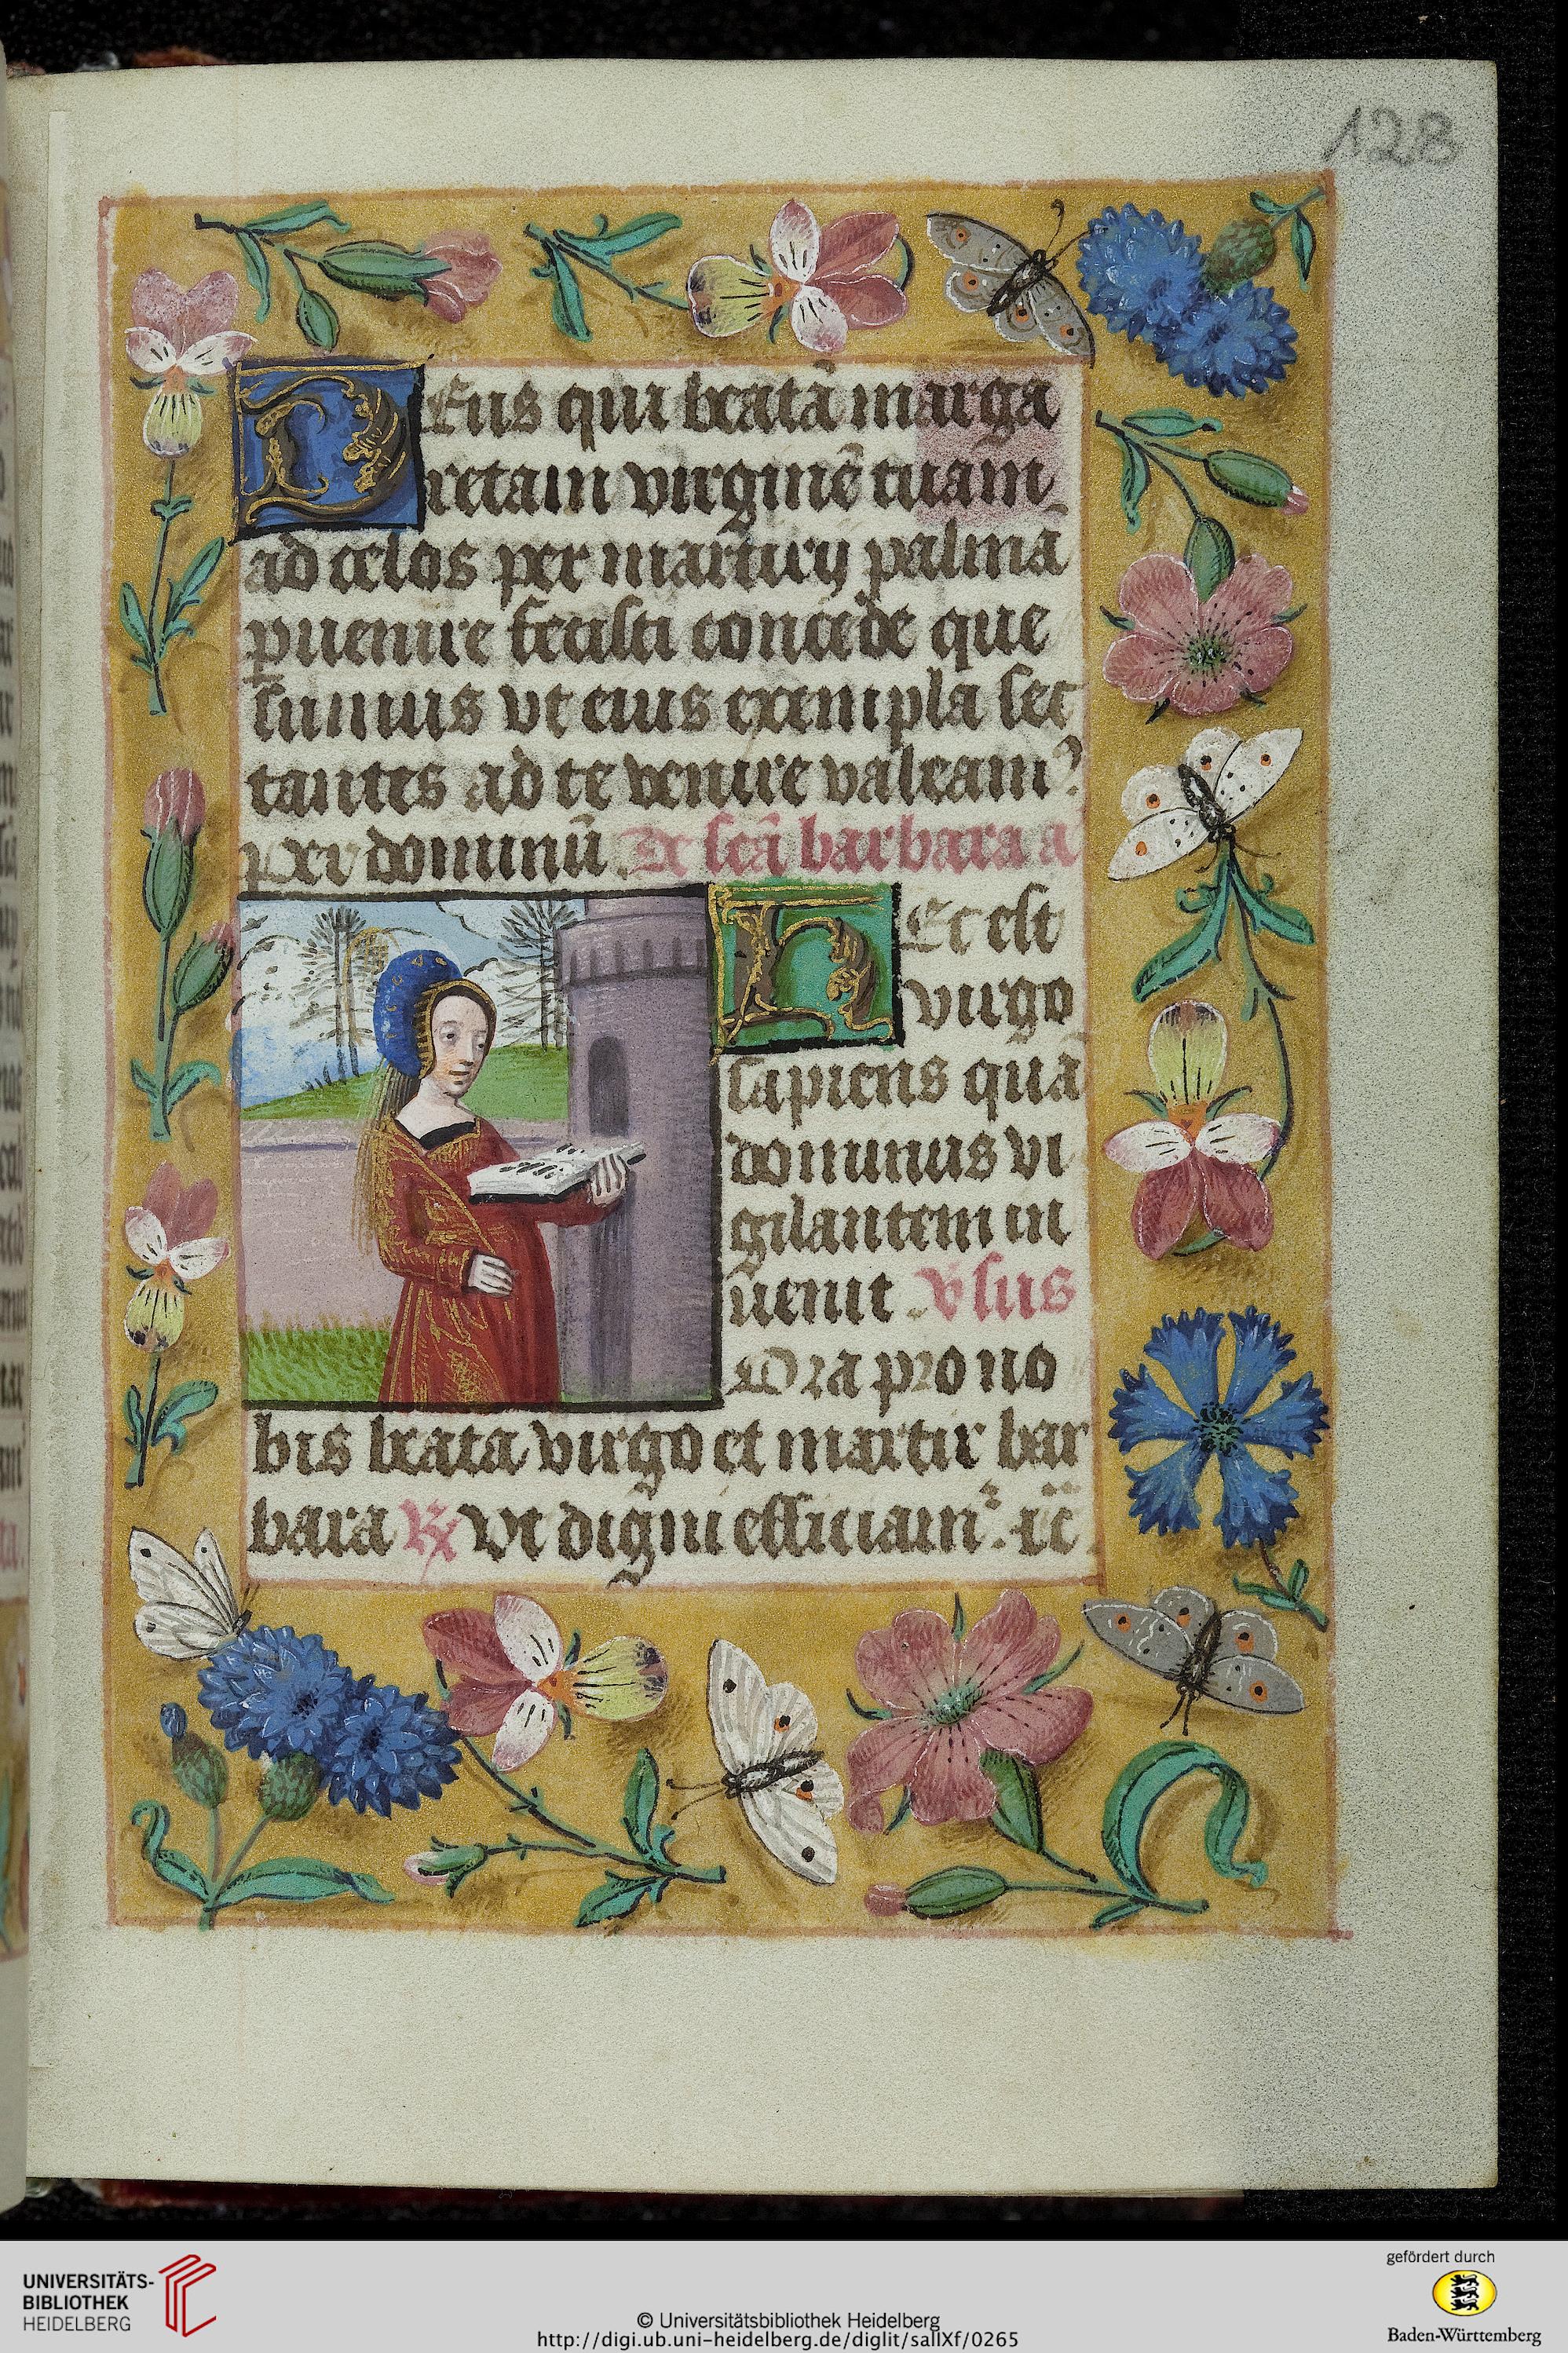 128
DEus qui beatā marga
retam virginē tuam
ad celos per martirij palmā
puenire fecisti concede que
sumus vt eius exempla sec
tantes ad te venire valeam²
per dominū. De scā barbara a
HEc est
virgo
sapiens quā
dominus vi
gilantem in
uenit. v̄sus
Ora pro no
bis beata virgo et martir bar
bara ℟ Vt digni efficiam². ⁊c̄
UNIVERSITÄTS-
BIBLIOTHEK
HEIDELBERG
© Universitätsbibliothek Heidelberg
http://digi.ub.uni-heidelberg.de/diglit/salIXf/0265
gefördert durch
Baden-Württemberg